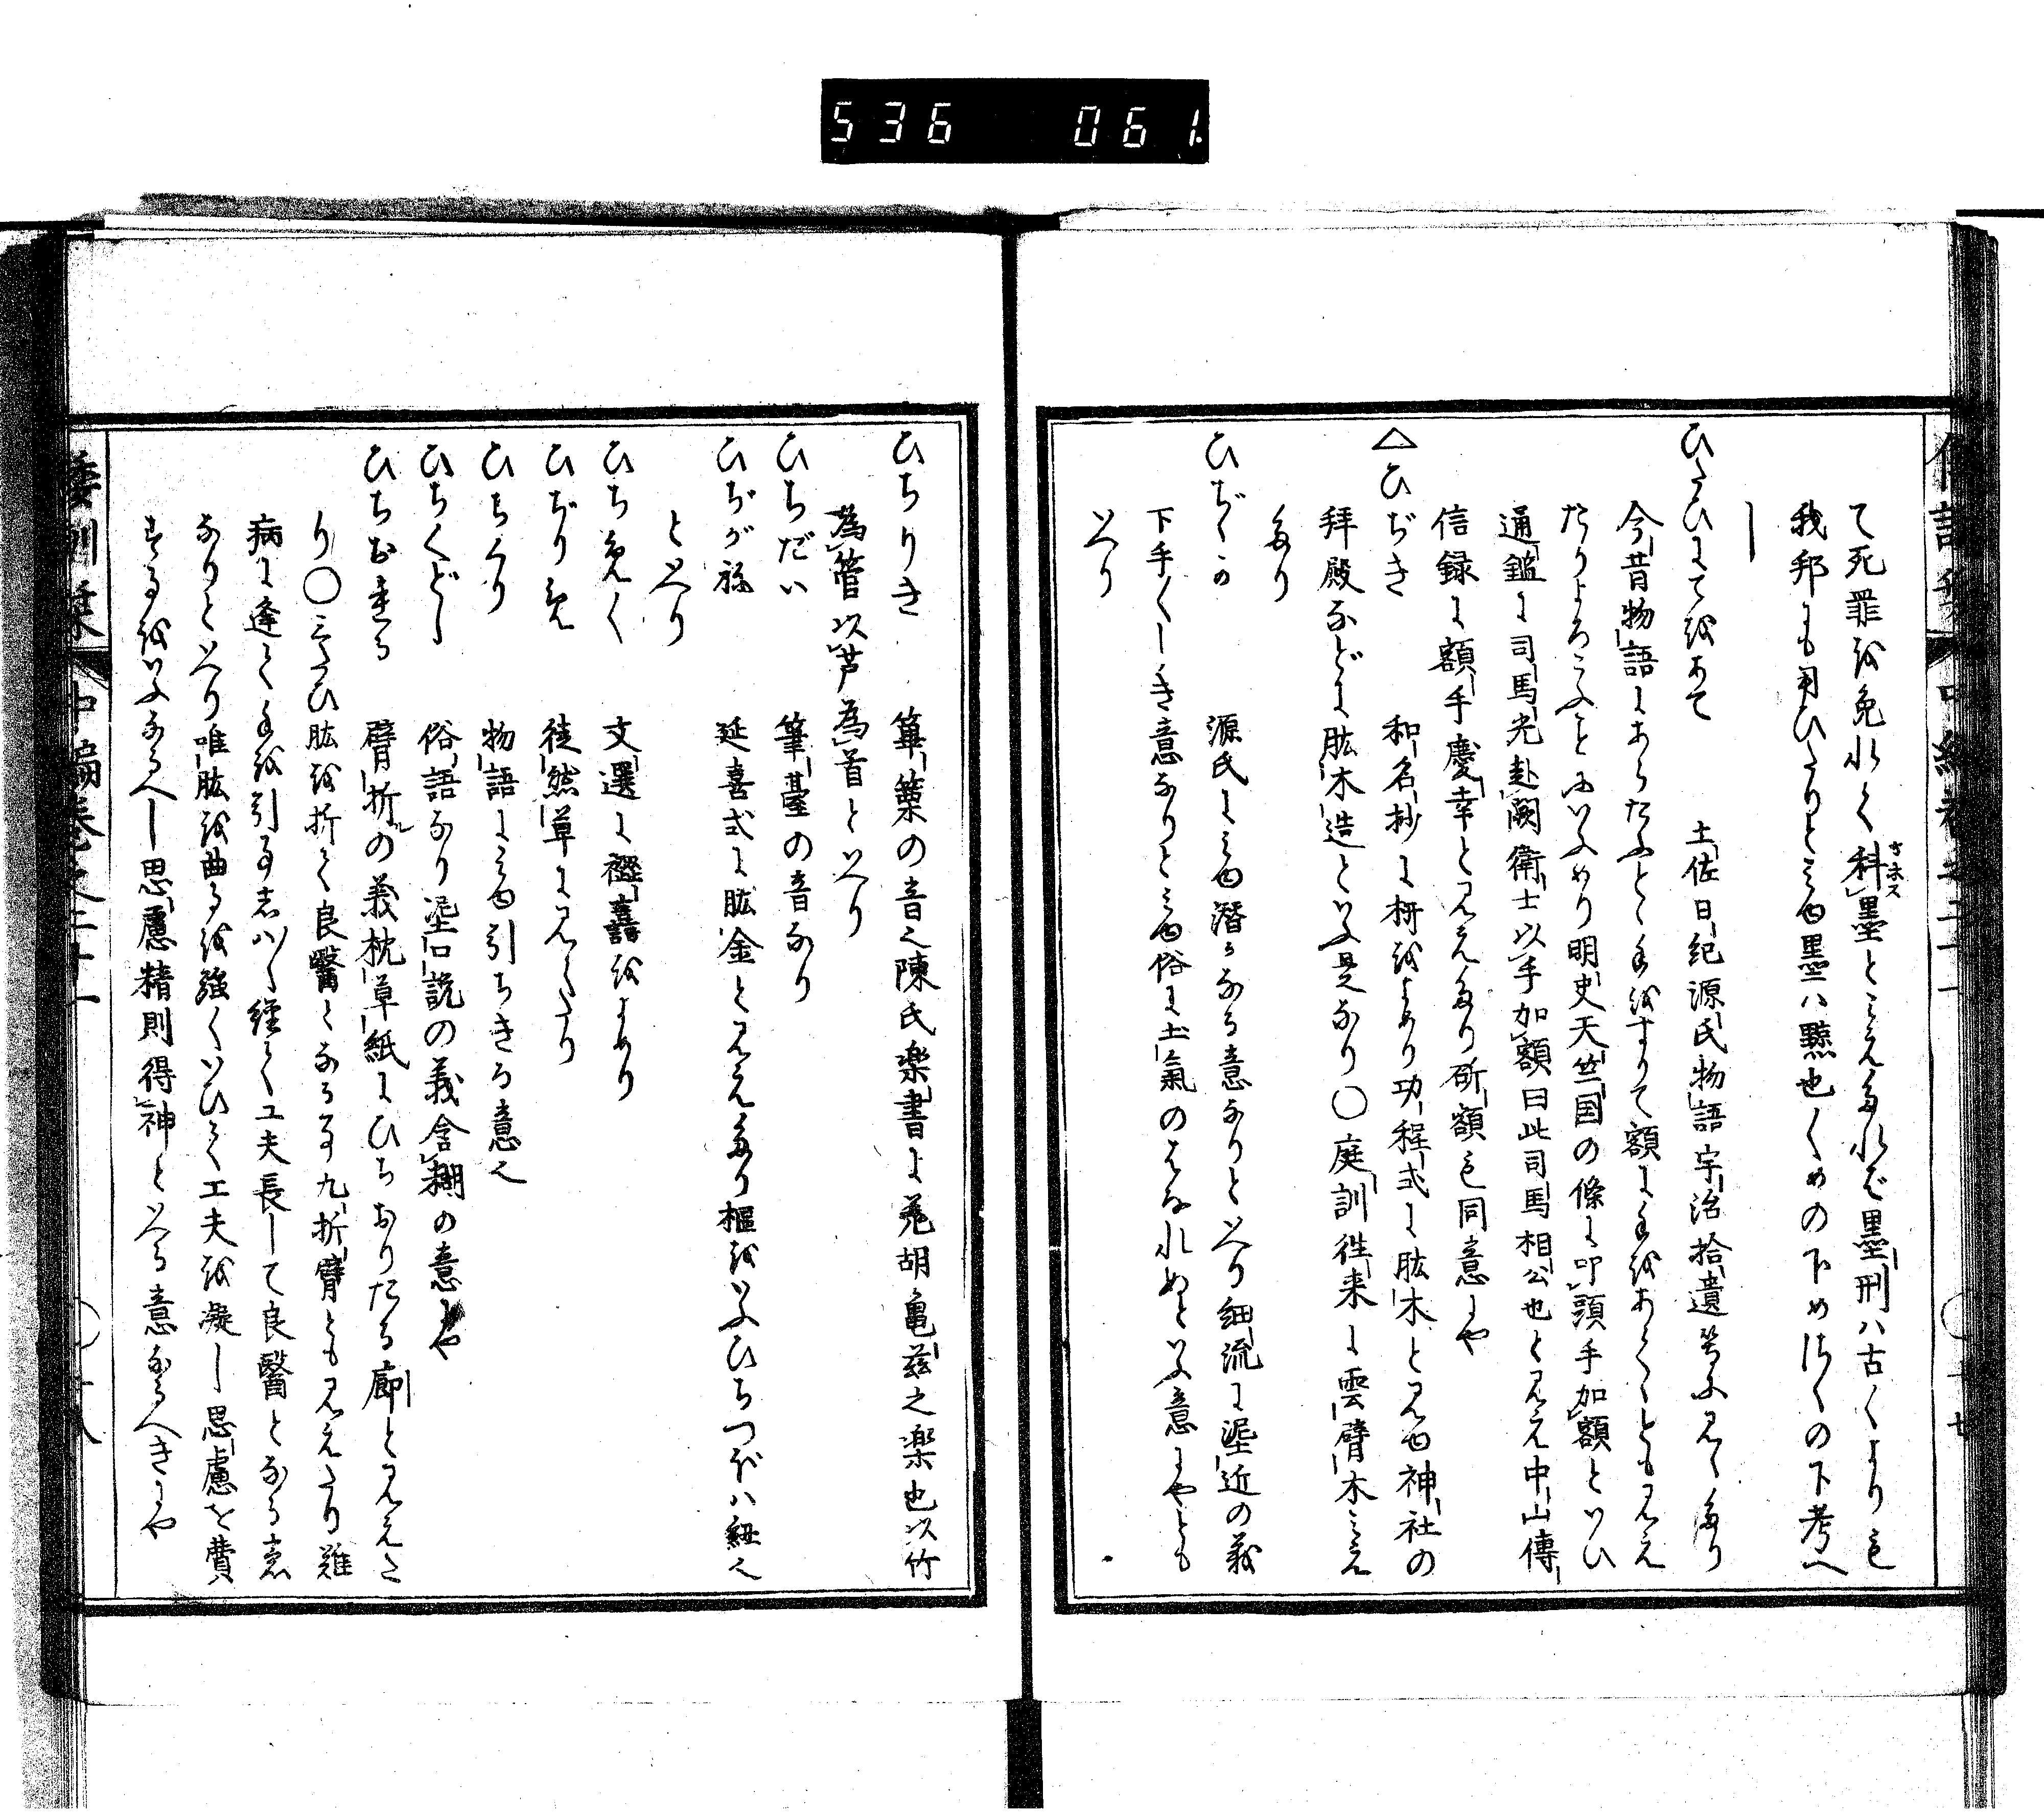 536 061
て死罪を免れて科墨と見えたれど墨刑ハ古くよりも
オホス
我邦にも用ひたりと見ゆ墨ハ黥也くめの下めさくの下考へ
し
ひたひにてをあて 土佐日紀源氏物語宇治拾遺等に見えたり
今昔物語にあらたふとと手をすりて額に手をあてゝとも見え
たりよろこふことにいへり明史天竺国の條に叩頭手加額といひ
通鑑に司馬光赴闕衛士以手加額曰此司馬相公也と見え中山傳
信録に額手慶幸と見えたり斫額も同意にや
△ひぢき 和名抄に枅をよめり功程式に肱木と見ゆ神社の
拜殿などに肱木造といふ是なり○庭訓徃来に雲臂木見え
たり
ひぢゝか 源氏に見ゆ潛かなる意なりといへり細流に泥近の義
下手〳〵しき意なりと見ゆ俗に土氣のはなれぬといふ意にやとも
いへり
ひちりき 篳篥の音也陳氏樂書に觱胡亀茲之楽也以竹
為管以芦為首といへり
ひちだい 筆臺の音なり
ひぢがね 延喜式に肱金と見えたり樞をいふひちつぼハ紐也
といへり
ひちめく 文選に𧞫譶をよめり
ひぢりめ 徒然草に見えたり
ひちくり 物語に見ゆ引ちきる意也
ひちくどし 俗語なり泥口説の義含糊の意にや
ひちおまる 臂折の義枕草紙にひちおりたる廊と見えた
り○三たひ肱を折て良醫となる事九折臂とも見えたり難
病に逢て手を引事しハ〳〵経て工夫長して良醫となる意
なりといへり唯肱を曲るを強くいひて工夫を凝し思慮を費
するをいふなるへし思慮精則得神といへる意なるへきにや
倭訓栞 中編巻之二十一